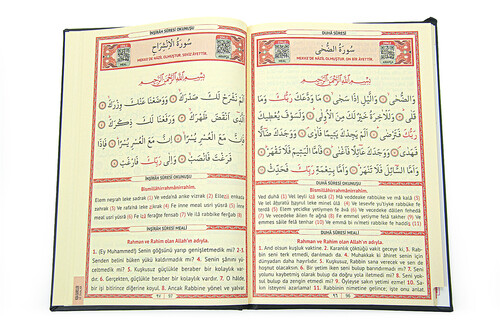 DUHÂ SÛRESİ OKUNUŞU
سُورَةُ الضُّحٰى
MEKKE'DE NÂZİL OLMUŞTUR, ON BİR ÂYETTİR.
بِسْمِ اللّٰهِ الرَّحْمٰنِ الرَّح۪يمِ
وَالضُّحٰىۙ وَالَّيْلِ اِذَا سَجٰىۙ مَا وَدَّعَكَ رَبُّكَ وَمَا
قَلٰىۜ وَلَلْاٰخِرَةُ خَيْرٌ لَكَ مِنَ الْاُو۫لٰىۜ وَلَسَوْفَ يُعْط۪يكَ
رَبُّكَ فَتَرْضٰىۜ اَلَمْ يَجِدْكَ يَت۪يمًا فَاٰوٰىۖ وَوَجَدَكَ ضَٓالًّا
فَهَدٰىۖ وَوَجَدَكَ عَٓائِلًا فَاَغْنٰىۜ فَاَمَّا الْيَت۪يمَ فَلَا تَقْهَرْۜ
وَاَمَّا السَّٓائِلَ فَلَا تَنْهَرْۜ وَاَمَّا بِنِعْمَةِ رَبِّكَ فَحَدِّثْ
DUHÂ SÛRESİ OKUNUŞU
Bismillâhirrahmânirrahîm.
Ved duhâ (1) Vel leyli izâ secâ (2) Mâ veddeake rabbüke ve mâ kalâ (3)
Ve lel âhıratü hayrul leke minel ûlâ (4) Ve lesevfe yu'tıyke rabbüke fe
terdâ (5) Elem yecidke yetîmen fe âvâ (6) Ve vecedeke dâllen fehedâ
(7) Ve vecedeke âilen fe ağnâ (8) Fe emmel yetîme felâ takher (9)
Ve emmes sâile felâ tenher (10) Ve emmâ bi ni'meti rabbike fe haddis (11)
DUHÂ SÛRESİ MEÂLİ
Rahman ve Rahim olan Allah'ın adıyla.
1. And olsun kuşluk vaktine, 2. Karanlık çöktüğü vakit geceye ki, 3. Rab-
bin seni terk etmedi, darılmadı da. 4. Muhakkak ki âhiret senin için
dünyadan daha hayırlıdır. 5. Kuşkusuz, Rabbin sana verecek ve sen de
hoşnut olacaksın. 6. Bir yetim iken seni bulup barındırmadı mı? 7. Seni
yolunu kaybetmiş olarak bulup da doğru yola iletmedi mi? 8. Seni yok-
sul bulup zengin etmedi mi? 9. Öyleyse sakın yetimi ezme! 10. Sa-
kın isteyeni azarlama! 11. Rabbinin nimetine gelince; işte onu anlat.
96
İNŞİRÂH SÛRESİ OKUNUŞU
سُورَةُ الْاِنْشِرَاحِ
MEKKE'DE NÂZİL OLMUŞTUR, SEKİZ ÂYETTİR.
بِسْمِ اللّٰهِ الرَّحْمٰنِ الرَّح۪يمِ
اَلَمْ نَشْرَحْ لَكَ صَدْرَكَۙ وَوَضَعْنَا عَنْكَ وِزْرَكَۙ
اَلَّذ۪ٓي اَنْقَضَ ظَهْرَكَۙ وَرَفَعْنَا لَكَ ذِكْرَكَۜ
فَاِنَّ مَعَ الْعُسْرِ يُسْرًاۙ اِنَّ مَعَ الْعُسْرِ يُسْرًاۜ فَاِذَا
فَرَغْتَ فَانْصَبْۙ وَاِلٰى رَبِّكَ فَارْغَبْ
İNŞİRÂH SÛRESİ OKUNUŞU
Bismillâhirrahmânirrahîm.
Elem neşrah leke sadrek (1) Ve veda'nâ anke vizrek (2) Ellezî enkada
zahrek (3) Ve rafa'nâ leke zikrek (4) Fe inne meal usri yüsrâ (5) İnne meal
usri yüsrâ (6) Fe izâ ferağte fensab (7) Ve ilâ rabbike ferğab (8)
İNŞİRÂH SÛRESİ MEÂLİ
Rahman ve Rahim olan Allah'ın adıyla.
1. (Ey Muhammed!) Senin göğsünü yarıp genişletmedik mi? 2-3.
Senden belini büken yükü kaldırmadık mı? 4. Senin şânını yü-
celtmedik mi? 5. Kuşkusuz güçlükle beraber bir kolaylık vardır.
6. Gerçekten, güçlükle beraber bir kolaylık vardır. 7. O hâlde,
bir işi bitirince diğerine koyul. 8. Ancak Rabbine yönel ve yalvar.
97